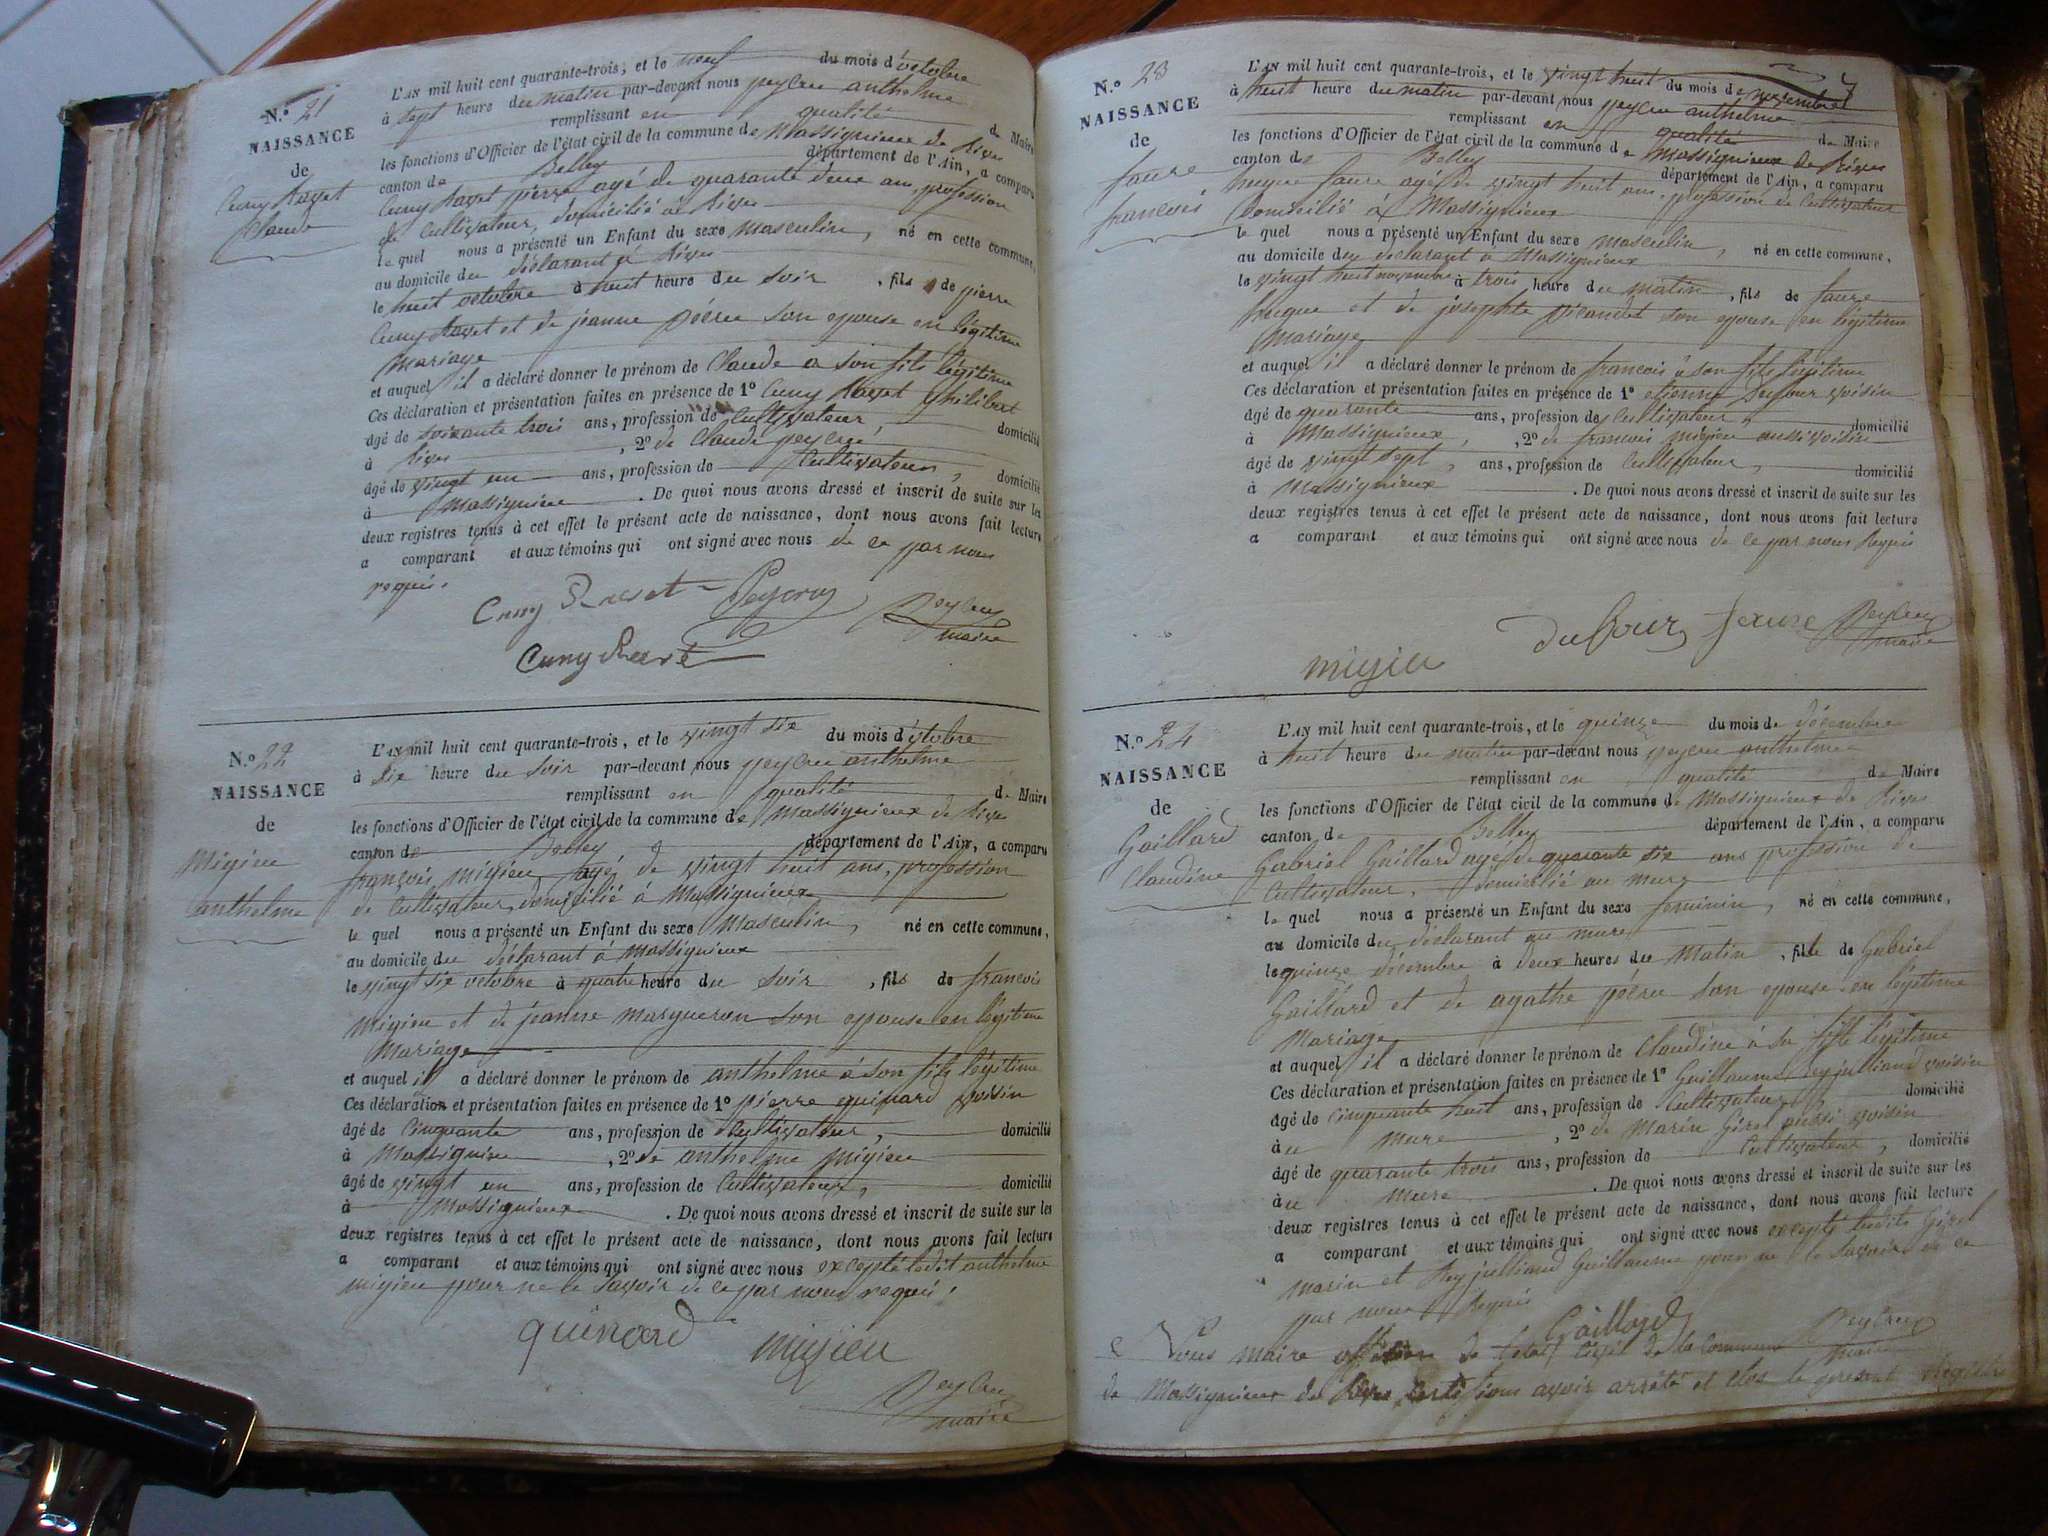 N.o 21
NAISSANCE
de
Cuny
Claude
L'AN mil huit cent quarante-trois, et le neuf du mois d'octobre
à sept heure du matin par-devant nous peycru anthelme
remplissant en qualité de Maire
les fonctions d'Officier de l'état civil de la commune de Massignieux de Rives
canton de Belley département de l'Ain, a comparu
Cuny pierre agé de quarante deux ans, profession
de Cultivateur, domicilié à Rives
le quel nous a présenté un Enfant du sexe masculin, né en cette commune,
au domicile du déclarant à Rives
le huit octobre à huit heure du soir, fils de pierre
Cuny et de jeanne son epouse en légitime
mariage
et auquel il a déclaré donner le prénom de Claude a son fils légitime
Ces déclaration et présentation faites en présence de 1o Cuny philibert
âgé de soixante trois ans, profession de Cultivateur domicilié
à Rives, 2o de Claude
âgé de vingt un ans, profession de Cultivateur, domicilié
à Massignieu. De quoi nous avons dressé et inscrit de suite sur les
deux registres tenus à cet effet le présent acte de naissance, dont nous avons fait lecture
a comparant et aux témoins qui ont signé avec nous de ce par nous
requis.
Cuny
maire
Cuny
N.o 22
NAISSANCE
de
Migieu
anthelme
L'AN mil huit cent quarante-trois, et le vingt six du mois d'octobre
à six heure du soir par-devant nous peycru anthelme
remplissant en qualité de Maire
les fonctions d'Officier de l'état civil de la commune de Massignieux de Rives
canton de Belley département de l'Ain, a comparu
françois migieu agé de vingt huit ans, profession
de Cultivateur, domicilié à Massignieux
le quel nous a présenté un Enfant du sexe Masculin, né en cette commune,
au domicile du déclarant à Massignieux
le vingt six octobre à quatre heure du soir, fils de francois
migieu et de jeanne margueron son epouse en légitime
Mariage
et auquel il a déclaré donner le prénom de anthelme à son fils légitime
Ces déclaration et présentation faites en présence de 1o pierre quinard voisin
âgé de cinquante ans, profession de Cultivateur, domicilié
à Massignieu, 2o de anthelme migieu
âgé de vingt un ans, profession de Cultivateur, domicilié
à Massignieux. De quoi nous avons dressé et inscrit de suite sur les
deux registres tenus à cet effet le présent acte de naissance, dont nous avons fait lecture
a comparant et aux témoins qui ont signé avec nous excepté ledit anthelme
migieu pour ne le savoir de ce par nous requi.
quinard migieu
maire
N.o 23
NAISSANCE
de
faure
francois
L'AN mil huit cent quarante-trois, et le vingt huit du mois de novembre
à huit heure du matin par-devant nous peycru anthelme
remplissant en qualité de Maire
les fonctions d'Officier de l'état civil de la commune de Massignieux de Rives
canton de Belley département de l'Ain, a comparu
hugue faure agé de vingt huit ans, profession de Cultivateur
domicilié à Massignieux
le quel nous a présenté un Enfant du sexe masculin, né en cette commune,
au domicile du déclarant à Massignieux
le vingt huit novembre à trois heure du matin, fils de faure
hugue et de josephte son epouse en légitime
Mariage
et auquel il a déclaré donner le prénom de francois à son fils légitime
Ces déclaration et présentation faites en présence de 1o etienne Dufour voisin
âgé de quarante ans, profession de Cultivateur, domicilié
à Massignieux, 2o de francois migieu aussi voisin
âgé de vingt sept, ans, profession de Cultivateur, domicilié
à Massignieux. De quoi nous avons dressé et inscrit de suite sur les
deux registres tenus à cet effet le présent acte de naissance, dont nous avons fait lecture
a comparant et aux témoins qui ont signé avec nous de ce par nous Requis
Dufour faure
maire
migieu
N.o 24
NAISSANCE
de
Gaillard
Claudine
L'AN mil huit cent quarante-trois, et le quinze du mois de décembre
à huit heure du matin par-devant nous peycru anthelme
remplissant en qualité de Maire
les fonctions d'Officier de l'état civil de la commune de Massignieux de Rives
canton de Belley département de l'Ain, a comparu
Gabriel Gaillard agé de quarante six ans profession de
Cultivateur, domicilié au mure
le quel nous a présenté un Enfant du sexe feminin, né en cette commune,
au domicile du déclarant au mure
le quinze décembre à deux heures du Matin, fille de Gabriel
Gaillard et de agathe son epouse en légitime
Mariage
et auquel il a déclaré donner le prénom de Claudine à sa fille légitime
Ces déclaration et présentation faites en présence de 1o Guillaume Reyjulliand voisin
âgé de cinquante huit ans, profession de Cultivateur, domicilié
au mure, 2o de Marin Gérel aussi voisin
âgé de quarante trois ans, profession de Cultivateur, domicilié
au mure. De quoi nous avons dressé et inscrit de suite sur les
deux registres tenus à cet effet le présent acte de naissance, dont nous avons fait lecture
a comparant et aux témoins qui ont signé avec nous excepté ledits Gérel
marin et Reyjulliand Guillaume pour ne le savoir de ce
par nous Requis Gaillard
maire
Nous maire officier de l'etat civil de la commune
de Massignieux de Rives certifions avoir arrêté et clos le présent Registre